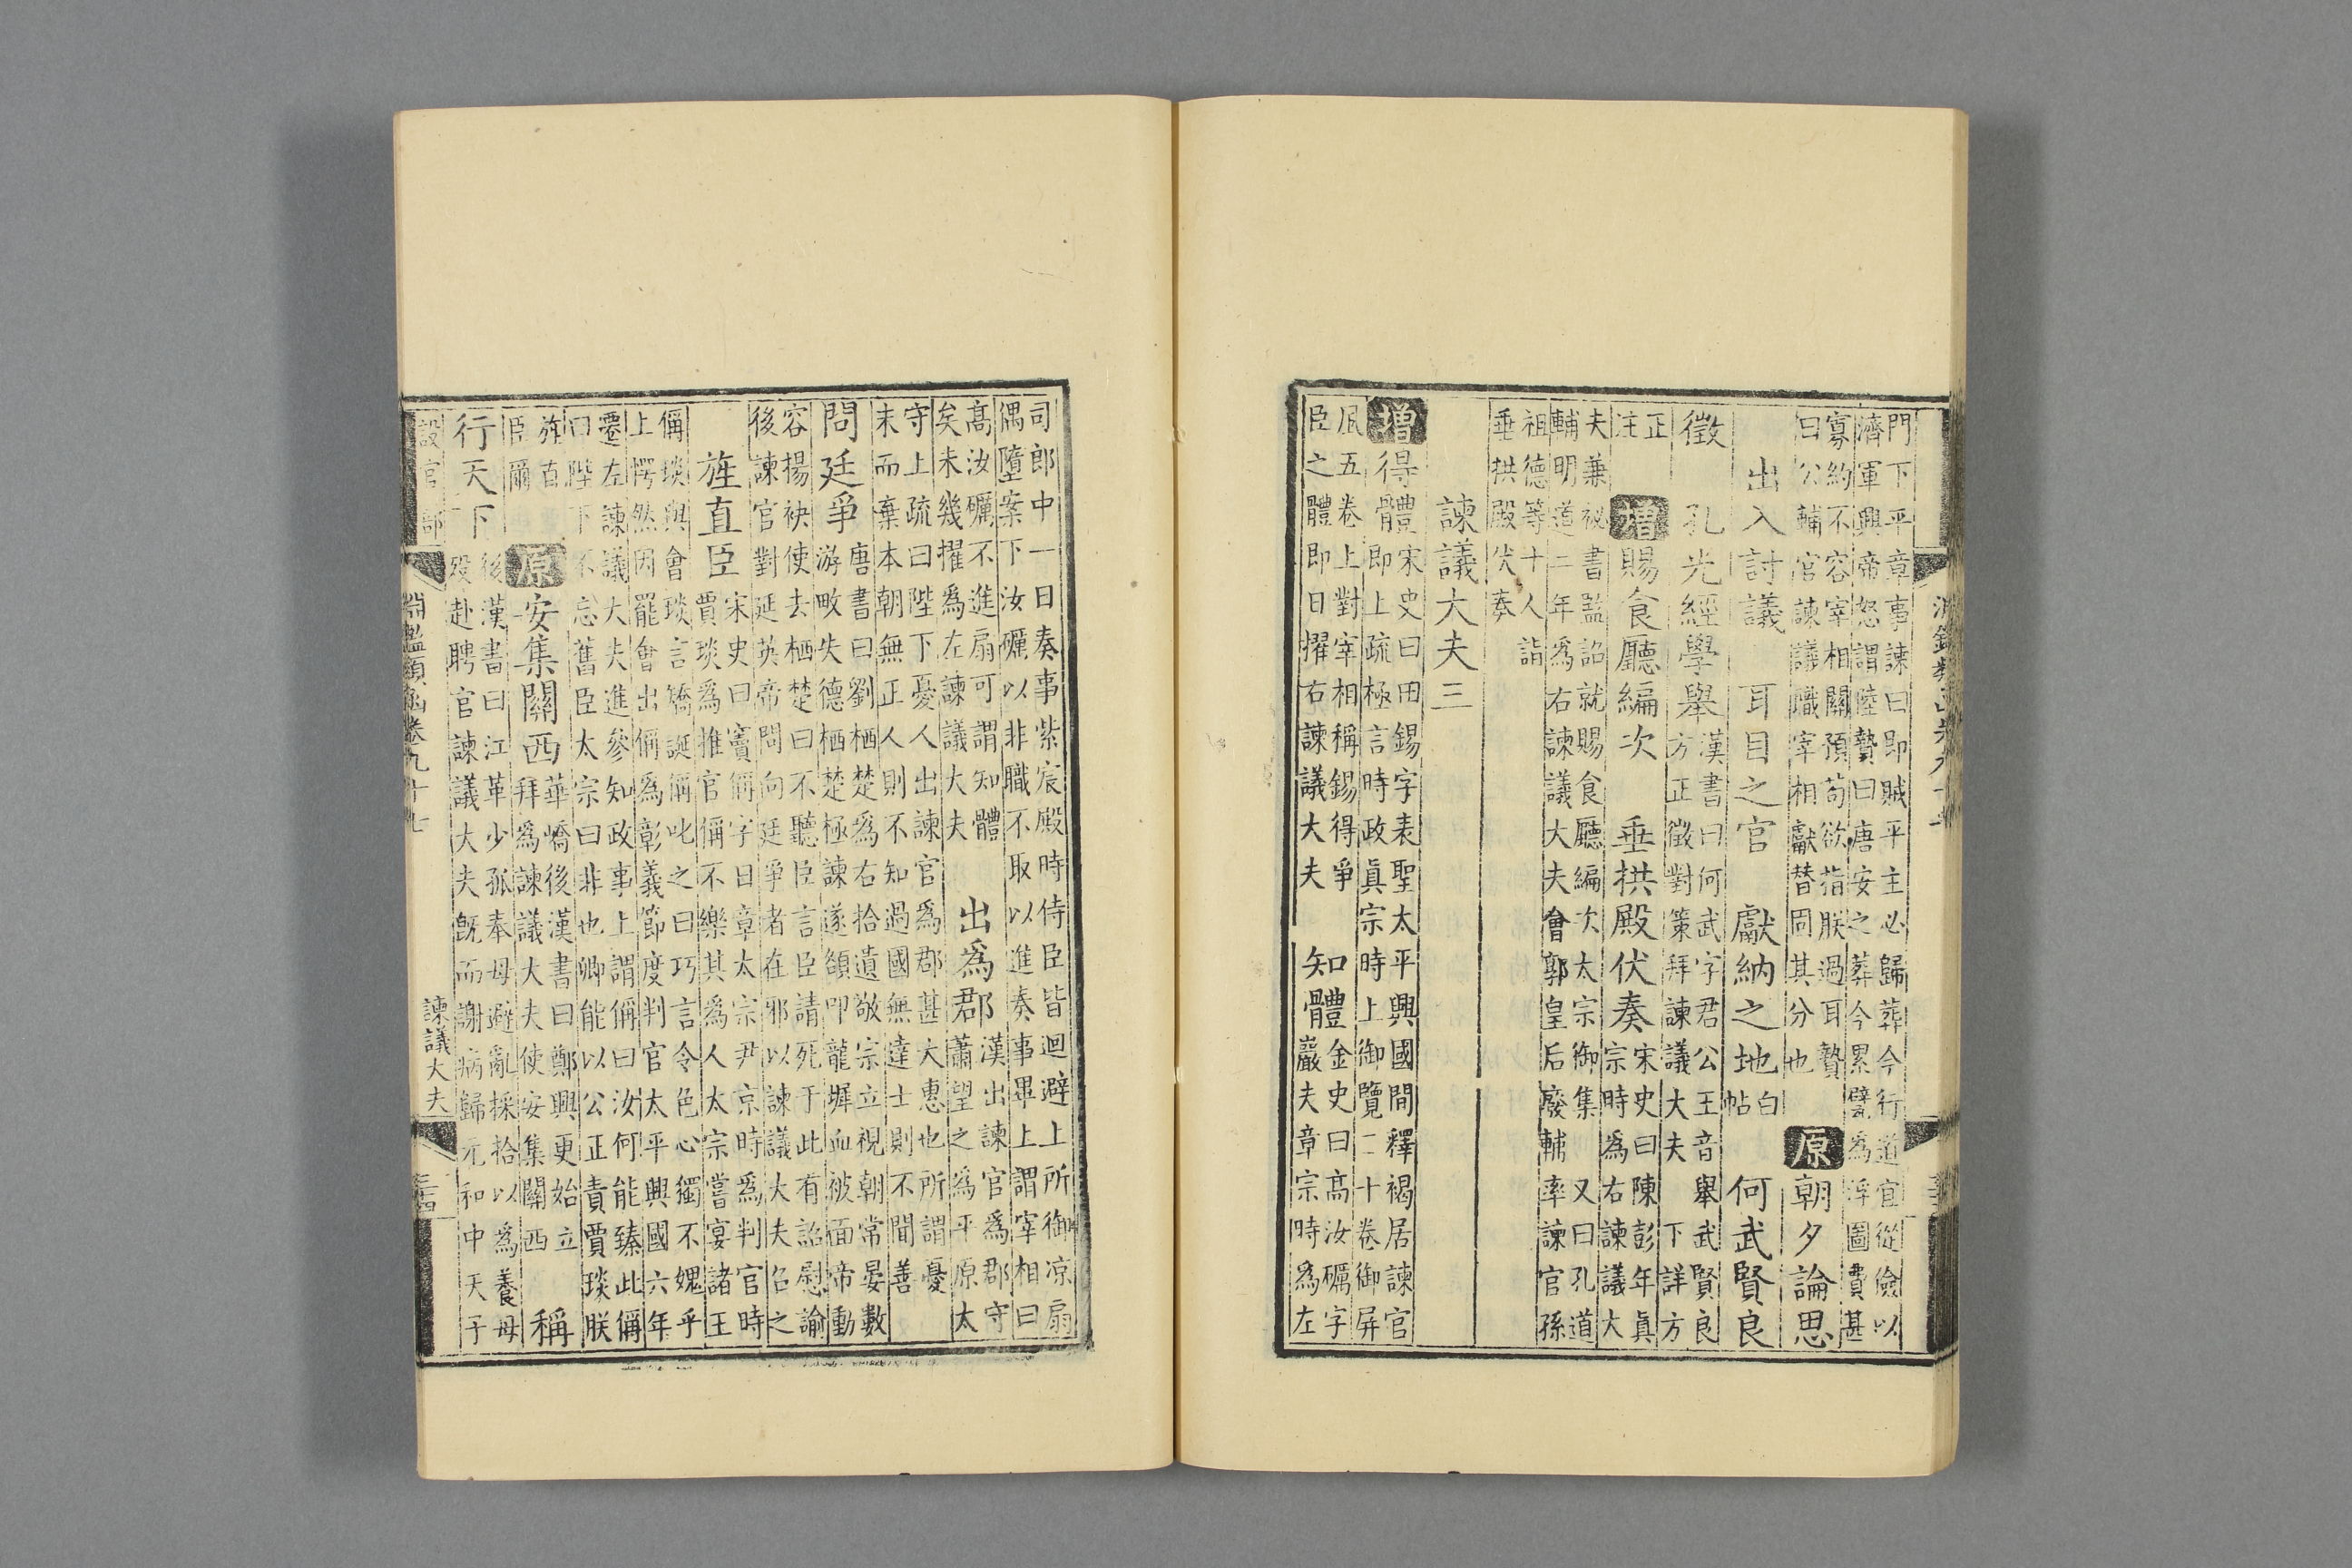 門下平章事諫曰即賊平主必歸葬今行道宜從儉以
濟軍興帝怒謂陸贄曰唐安之葬今累甓為浮圖費甚
寡約不容宰相關預茍欲指朕過耳贄
曰公輔官諫議職宰相獻替固其分也
原朝夕論思
出入討議 耳目之官 獻納之地 白帖 何武賢良
徵 孔光經學舉
漢書曰何武字君公王音舉武賢良
方正徵對策拜諫議大夫 下詳方
正
注
增賜食廳編次 垂拱殿伏奏
宋史曰陳彭年眞
宗時為右諫議大
夫兼祕書監詔就賜食廳編次太宗御集 又曰孔道
輔明道二年為右諫議大夫會郭皇后廢輔率諫官孫
祖德等十人詣
垂拱殿伏奏
諫議大夫三
增得體
宋史曰田錫字表聖太平興國間釋褐居諫官
即上疏極言時政眞宗時上御覽二十卷御屏
風五卷上對宰相稱錫得爭
臣之體即日擢右諫議大夫
知體
金史曰高汝礪字
巖夫章宗時為左
司郎中一日奏事紫宸殿時侍臣皆迴避上所御凉扇
偶墮案下汝礪以非職不取以進奏事畢上謂宰相曰
高汝礪不進扇可謂知體
矣未幾擢為左諫議大夫
出為郡
漢出諫官為郡守
蕭望之為平原太
守上疏曰陛下憂人出諫官為郡甚大惠也所謂憂
末而棄本朝無正人則不知過國無達士則不聞善
問廷爭
唐書曰劉栖楚為右拾遺敬宗立視朝常晏數
游畋失德栖楚極諫遂頟叩龍墀血被面帝動
容揚袂使去栖楚曰不聽臣言臣請死于此有詔慰諭
後諫官對延英帝問向廷爭者在邪以諫議大夫召之
旌直臣
宋史曰竇偁字日章太宗尹京時為判官時
賈琰為推官偁不樂其為人太宗嘗宴諸王
偁琰與會琰言矯誕偁叱之曰巧言令色心獨不媿乎
上愕然因罷會出偁為彰義節度判官太平興國六年
遷左諫議大夫進參知政事上謂偁曰汝何能臻此偁
曰陛下不忘舊臣太宗曰非也卿能以公正責賈琰朕
旌直
臣爾
原安集關西
華嶠後漢書曰鄭興更始立
拜為諫議大夫使安集關西
稱行天下
後漢書曰江革少孤奉母避亂採拾以為養母
歿赴聘官諫議大夫旣而謝病歸元和中天子
設官部
淵鑑類函卷九十七
諫議大夫